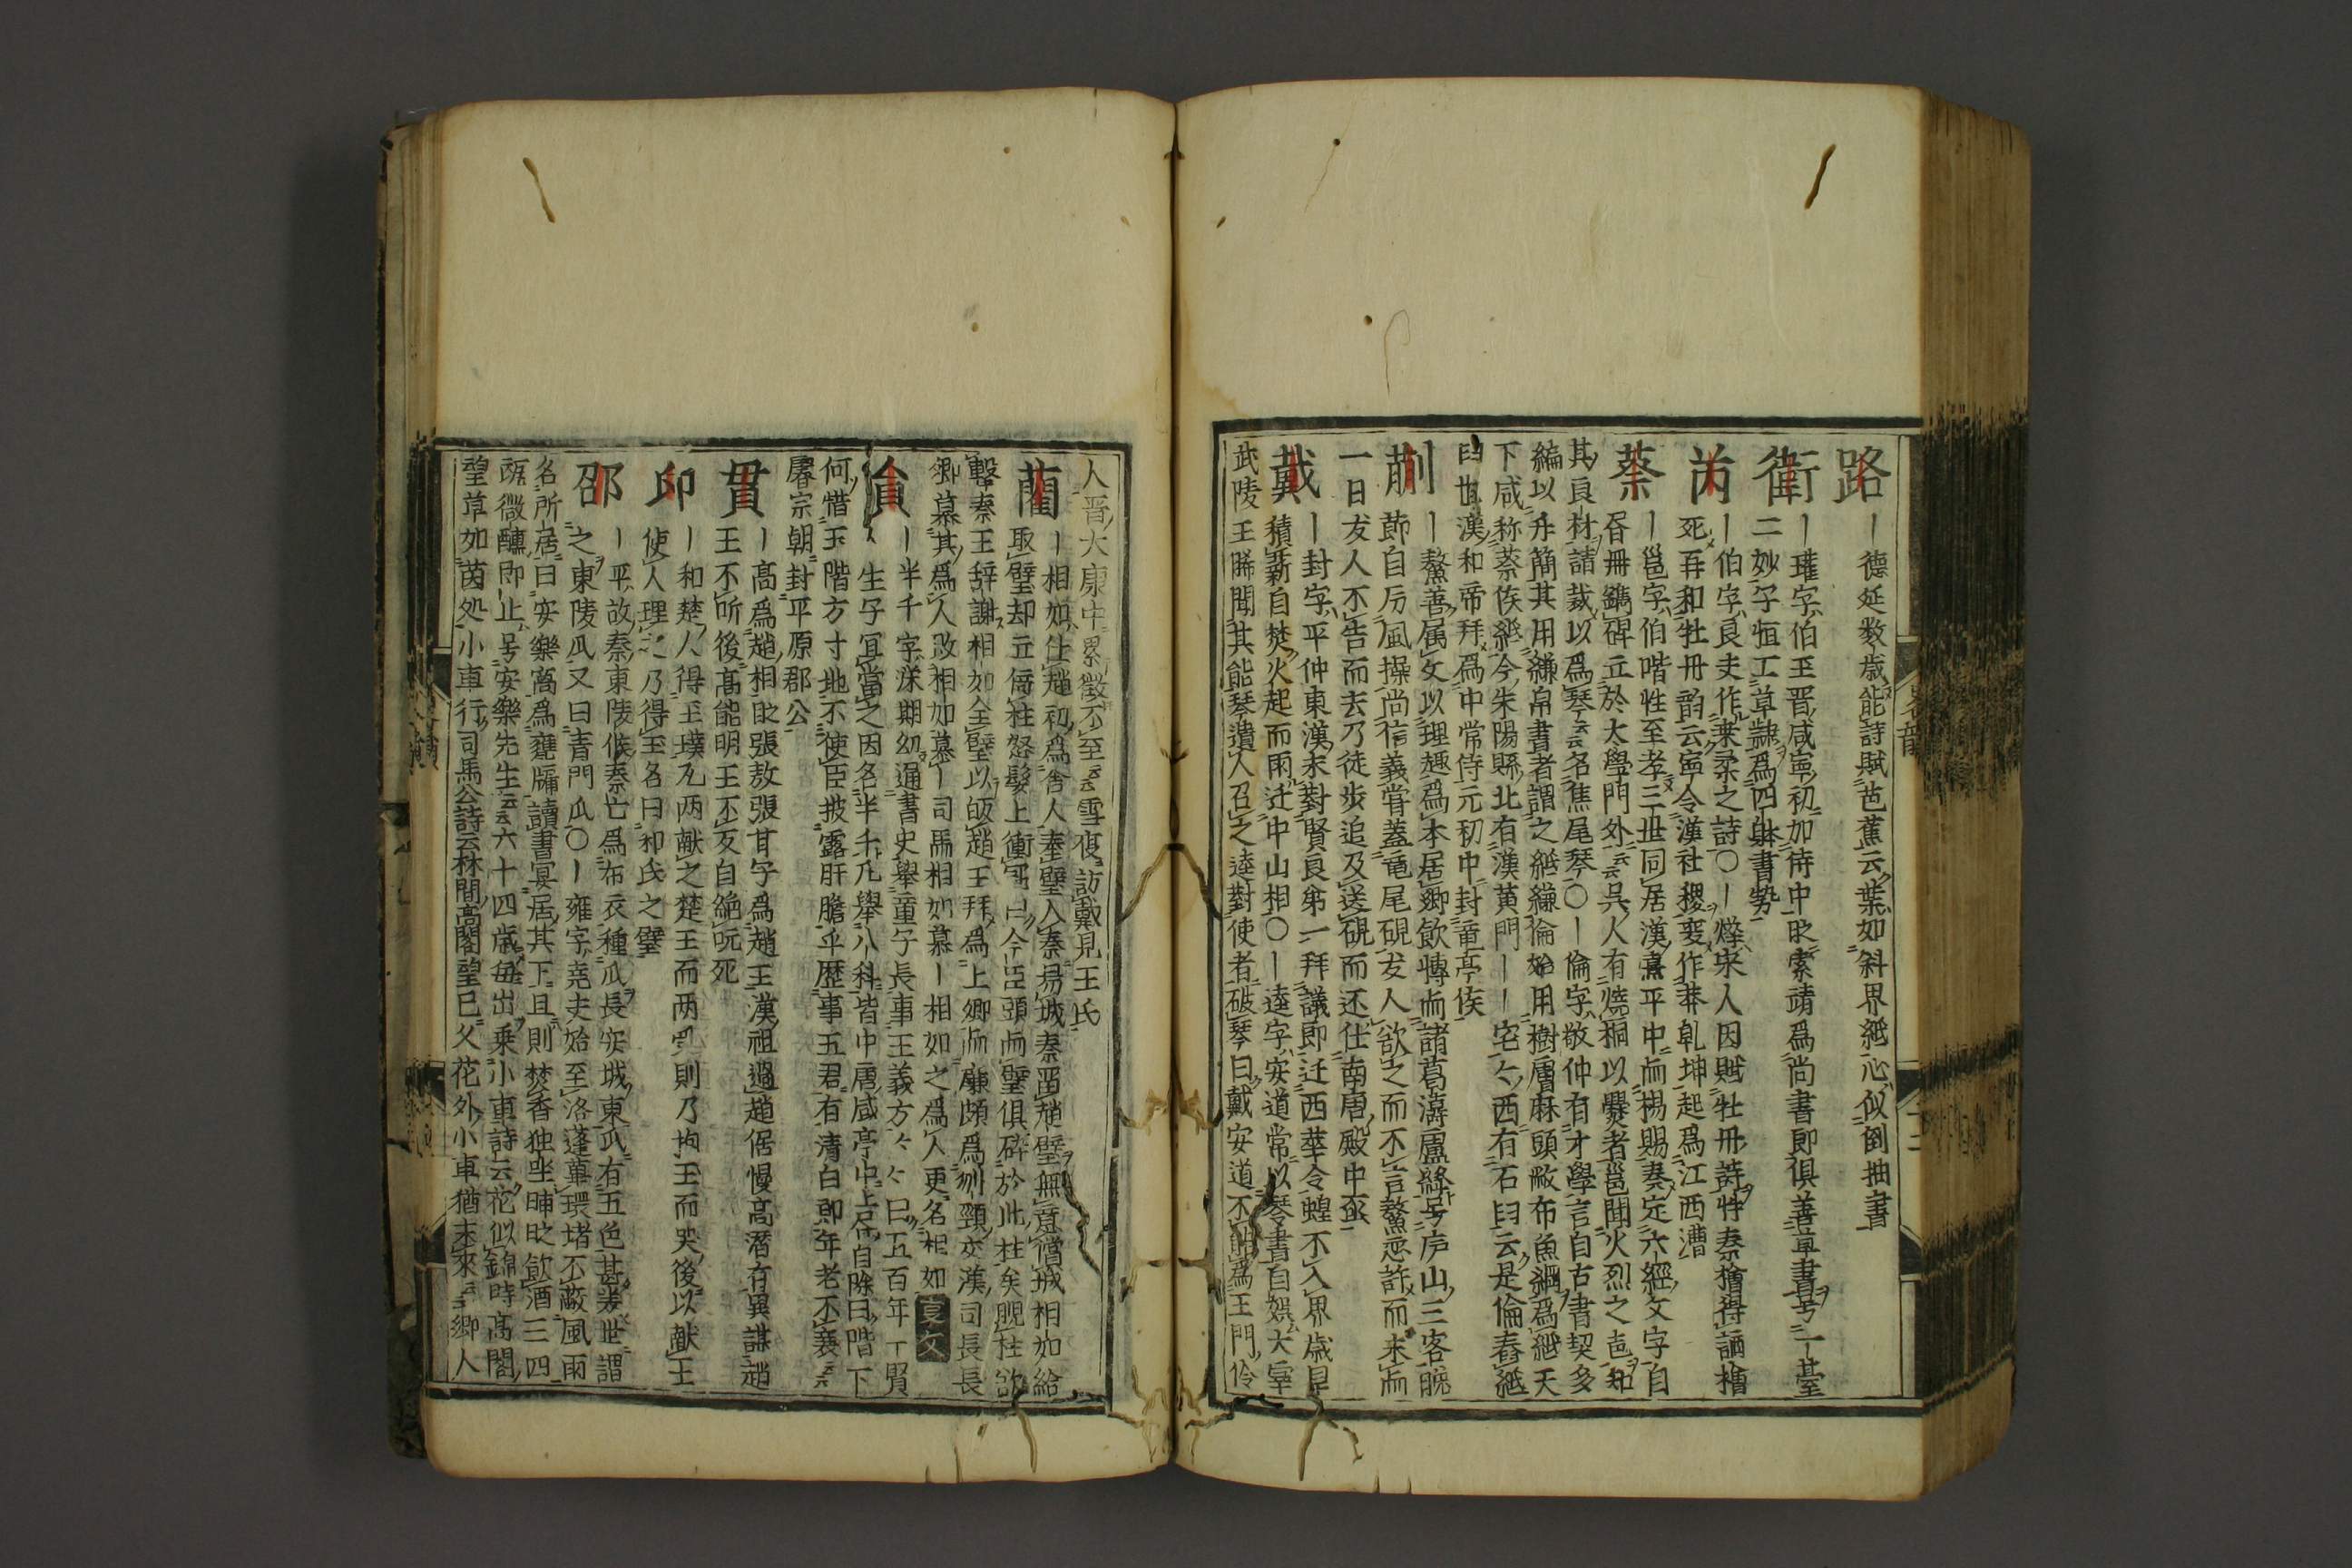 路
｜德延数歳能詩賦芭蕉云葉如斜界紙心似倒抽書
衛
｜瓘字伯玉晋咸寧初加侍中时索靖爲尚書郎俱善草書号一臺
二妙子恒工草隷爲四体書勢
芮
｜伯字良夫作桒柔之詩〇｜燁宋人因賦牡丹詩忤秦檜得誦檜
死再和牡丹韵云寧令漢社稷変作莽乹坤起爲江西漕
蔡
｜邕字伯喈性至孝三世同居漢熹平中而楊賜奏定六經文字自
丹鐫碑立於大學門外云云呉人有焼桐以爨者邕聞火烈之声知
其良材請裁以爲琴云云名焦尾琴〇｜倫字敬仲有才學言自古書契多
編以竹簡其用縑帛書者謂之紙縑倫始用樹膚麻頭敝布魚網爲紙天
下咸称蔡侯紙今朱陽縣北有漢黄門｜｜宅々西有石臼云是倫舂紙
臼也漢和帝拜爲中常侍元初中封竜亭侯
蒯
｜鰲善属文以理趣爲本居郷飲博而諸葛濤盧絳号庐山三客晩
節自厉風操尚信義甞蓋竜尾硯友人欲之而不言鰲悉許而未而
一日友人不告而去乃徒歩追及送硯而还仕南唐殿中丞
戴
｜封字平仲東漢末對賢良第一拜議郎迁西華令蝗不入界歳旱
積薪自焚火起而雨迁中山相〇｜逵字安道常以琴書自娯大宰
武陵王晞聞其能琴遺人召之逵對使者破琴曰戴安道不能爲王門伶
人晋大康中累徵不至云云雪夜訪戴見王氏
藺
｜相如仕趙初爲舎人奉璧入秦易城秦畄趙璧無意償城相如給
取璧却立倚柱怒髪上衝冠曰今臣頭而璧俱碎於此柱矣睨柱欲
擊秦王辞謝相如全璧以皈趙王拜爲上卿而廉頗爲刎頸交漢司長長
卿慕其爲人改相如慕｜司馬相如慕｜相如之爲人更名相如夏文
員
｜半千字榮期幼通書史擧童子長事王義方々々曰五百年一賢
生子冝當之因名半千凢擧八科皆中唐咸亭中上居自除曰階下
何惜玉階方寸地不使臣披露肝膽乎歴事五君有清白即年老不衰云云
睿宗朝封平原郡公
貫
｜髙爲趙相时張敖張甘子爲趙王漢祖過趙倨慢高潜有異謀趙
王不听後髙能明王不反自絶吭死
卭
｜和楚人得玉璞凢两献之楚王而两刖則乃抱玉而哭後以献王
使人理之乃得玉名曰和氏之璧
邵
｜平故秦東陵侯秦亡爲布衣種瓜長安城東瓜有五色甚美世謂
之東陵瓜又曰青門瓜〇｜雍字堯夫始至洛蓬蓽環堵不蔽風雨
名所居曰安樂窩爲甕牖讀書宴居其下旦則焚香独坐晡时飲酒三四
甌微醺即止号安樂先生云云六十四歳毎岀乗小車詩云花似錦時高閣
望草如茵処小車行司馬公詩云林間高閣望已久花外小車猶未來云云郷人